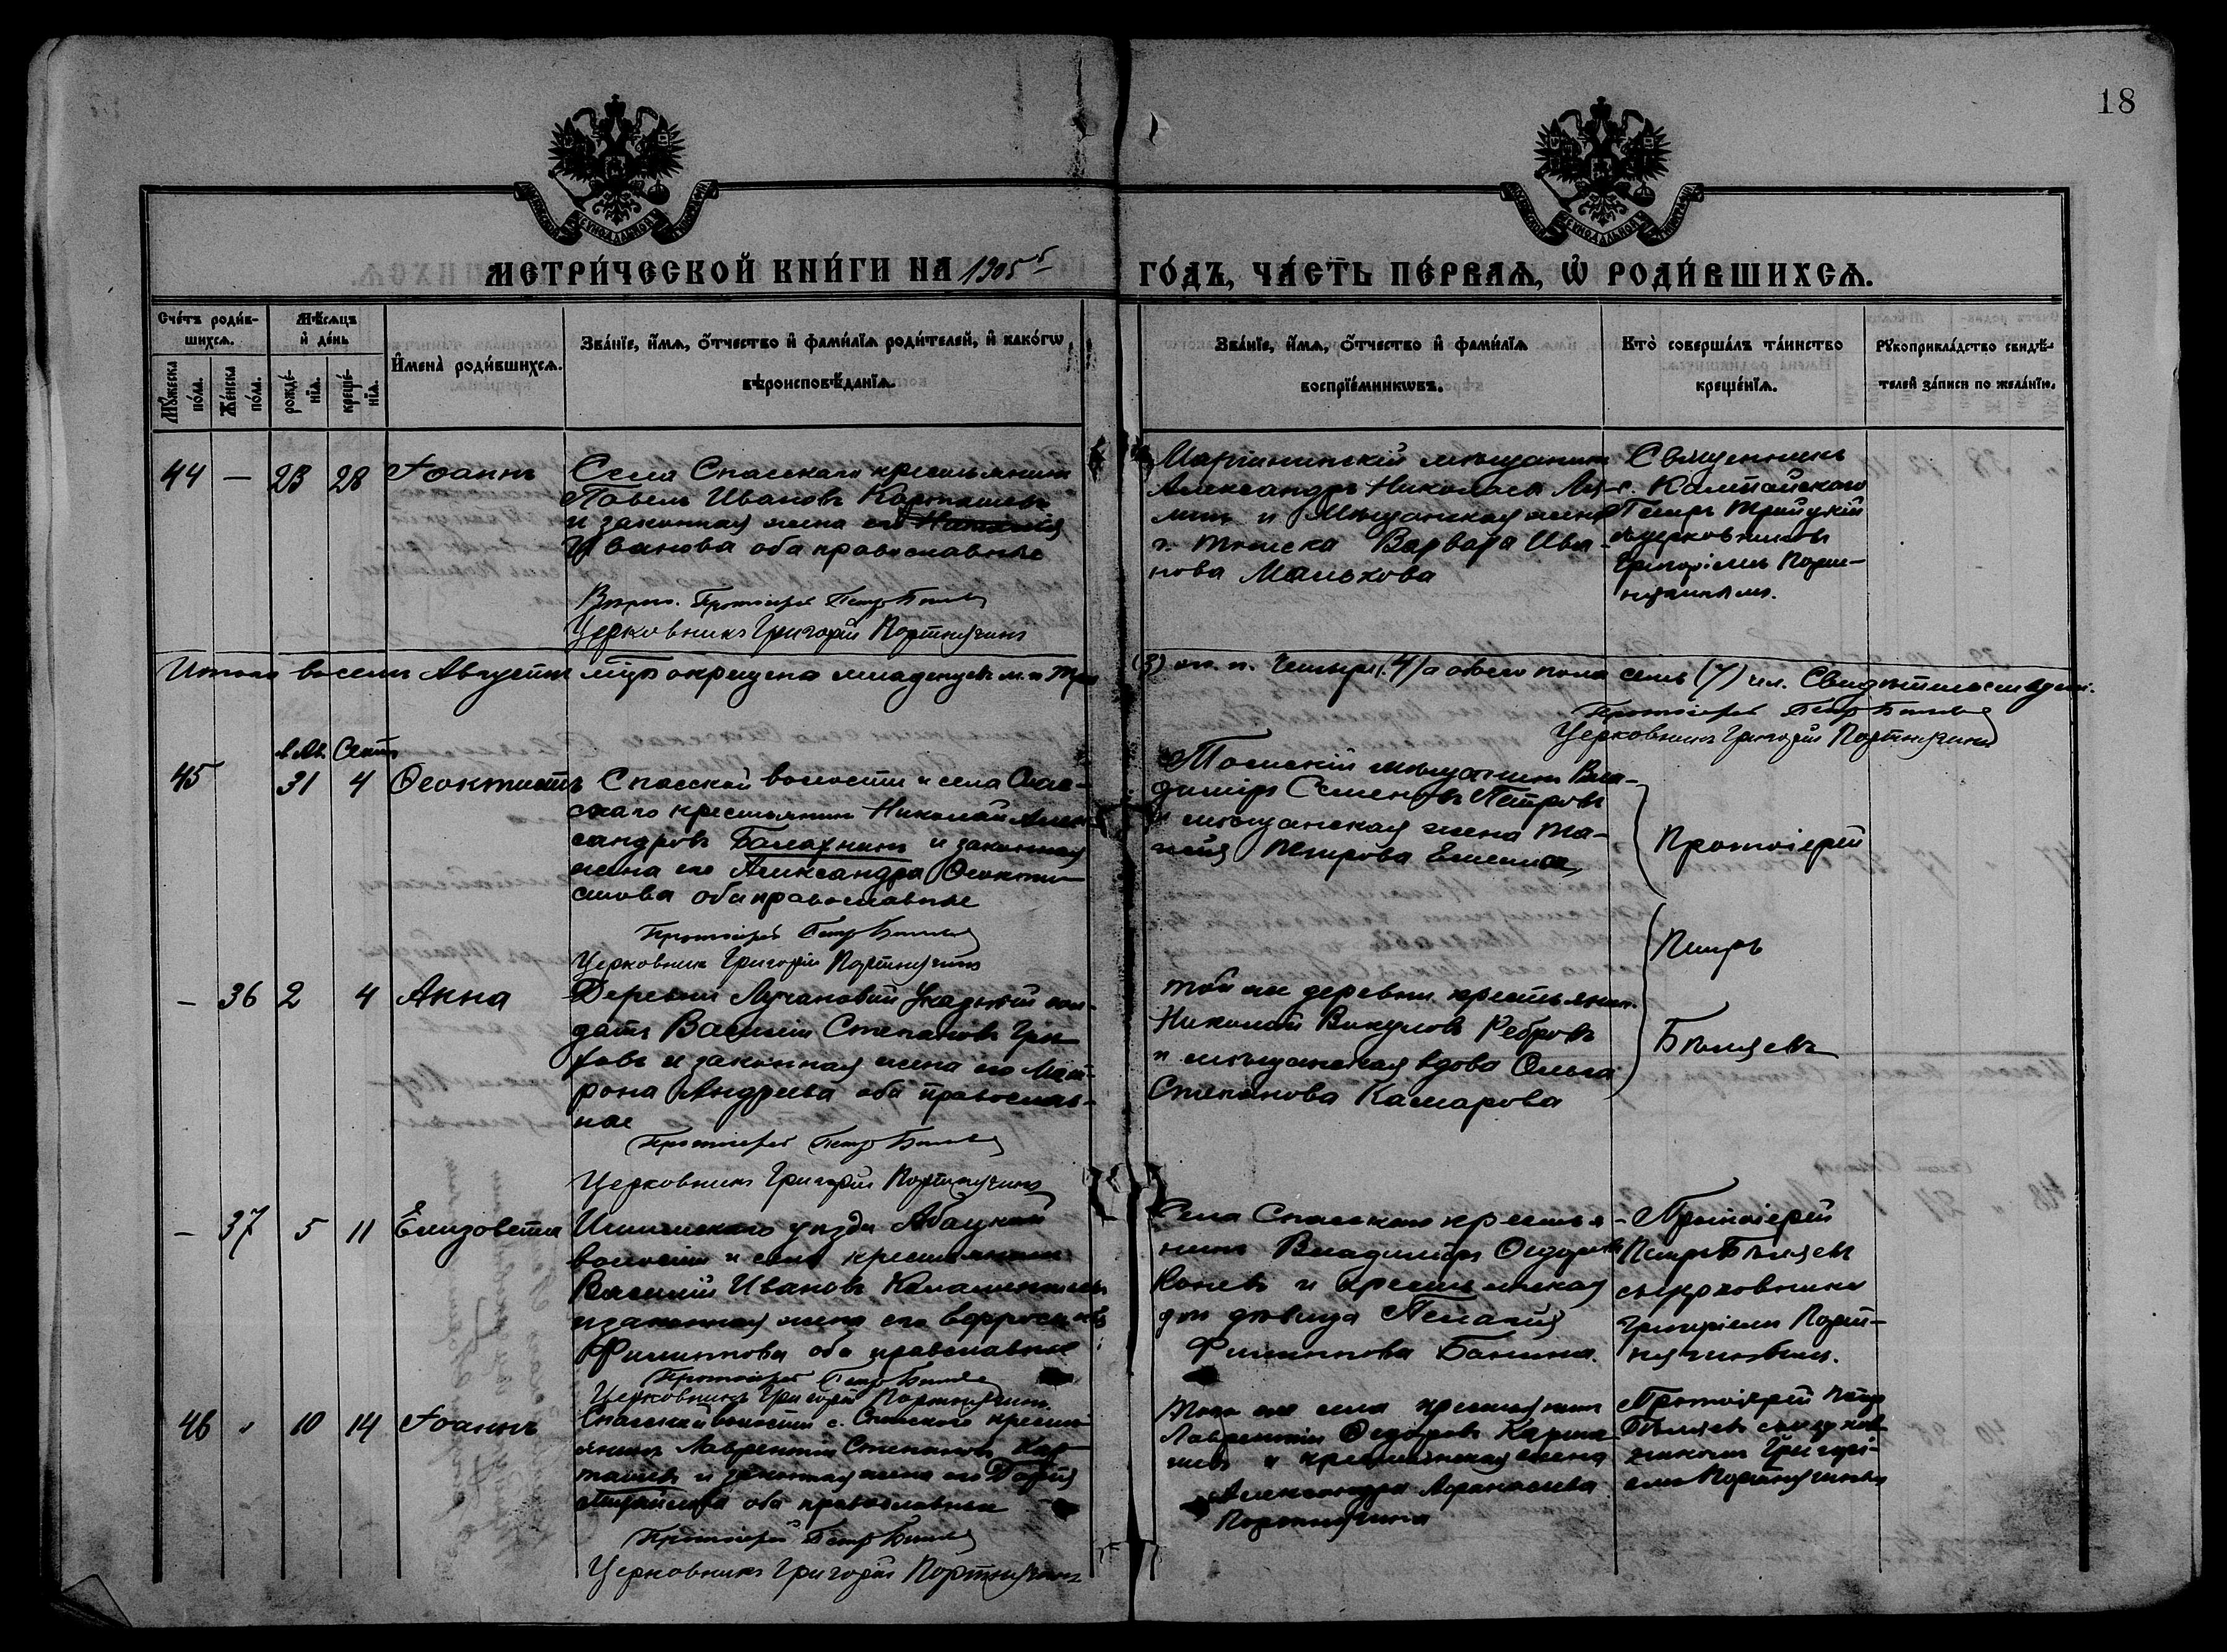 18
МЕТРИ́ЧЕСКОЙ КНИ́ГИ НА 1905 ГО́ДЪ, ЧА́СТЬ ПЕ́РВАѦ, Ѽ РОДИ́ВШИХСѦ.
Сче́тъ роди́в-
шихсѧ.
Мѣ́сѧцъ
и҆ де́нь
Мꙋ́жеска
по́ла.
Же́нска
по́ла.
рожде́-
нїѧ.
креще́-
нїѧ.
И҆мена̀ роди́вшихсѧ.
Зва́нїе, и҆́мѧ, ѻ҆́тчество и҆ фами́лїѧ роди́телей, и҆ како́гѡ
вѣроисповѣ́данїѧ.
Зва́нїе, и҆́мѧ, ѻ҆́тчество и҆ фами́лїѧ
воспрїе́мникѡвъ.
Кто̀ соверша́лъ та́инство
креще́нїѧ.
Рꙋкоприкла́дство свидѣ́-
телей за́писи по жела́нїю.
44 — 23 28 Іоаннъ
Села Спасскаго крестьянинъ
Павелъ Ивановъ Карташевъ
и законная жена его
Иванова оба православные
Протоіерей Петръ Бѣляевъ
Церковникъ Григорій Портнягинъ
Маріинскій мѣщанинъ
Александръ Николаевъ
и Мѣщанская жена
г. Томска Варвара Ива-
нова Малькова
Священникъ
с.
Петръ Троицкій
съ церковникомъ
Григоріемъ Порт-
нягинымъ.
Итого во семъ Августѣ м-цѣ окрещено младенцевъ м. п. три
(3) ж. п. четыре (4) а обоего пола семь (7) чел.
Протоіерей Петръ Бѣляевъ
Церковникъ Григорій Портнягинъ
Авг. Сент.
45 31 4 Ѳеоктистъ
Спасской волости и села Спас-
скаго крестьянинъ Николай Алек-
сандровъ Балахнинъ и законная
жена его Александра Ѳеокти-
стова оба православные
Протоіерей Петръ Бѣляевъ
Церковникъ Григорій Портнягинъ
Томскій мѣщанинъ Вла-
диміръ Семеновъ Петровъ
и мѣщанская жена
Петрова
Протоіерей
Петръ
Бѣляевъ
— 36 2 4 Анна
Деревни Лучановой
Василій Степановъ
и законная жена его Мат-
рона Андреева оба православ-
ные
Протоіерей Петръ Бѣляевъ
Церковникъ Григорій Портнягинъ
той же деревни крестьянинъ
Николай Викуловъ Ребровъ
и мѣщанская вдова Ольга
Степанова Камарова
— 37 5 11 Елизавета
Ишимскаго уѣзда Абацкой
волости и села крестьянинъ
Василій Ивановъ
и законная жена его
Филиппова оба православные
Протоіерей Петръ Бѣляевъ
Церковникъ Григорій Портнягинъ
Села Спасскаго крестья-
нинъ Владиміръ Ѳедоровъ
Коневъ и крестьянская
дочь дѣвица Пелагія
Филиппова Банина.
Протоіерей
Петръ Бѣляевъ
съ церковникомъ
Григоріемъ Порт-
нягинымъ.
46 „ 10 14 Іоаннъ
Спасской волости с. Спасскаго кресть-
янинъ Лаврентій Степановъ Кар-
ташевъ и законная жена его Дарія
Михайлова оба православные
Протоіерей Петръ Бѣляевъ
Церковникъ Григорій Портнягинъ
Того же села крестьянинъ
Лаврентій Ѳедоровъ Карта-
шевъ и крестьянская жена
Александра Афанасьева
Портнягина
Протоіерей Петръ
Бѣляевъ съ церков-
никомъ Григорі-
емъ Портнягинымъ